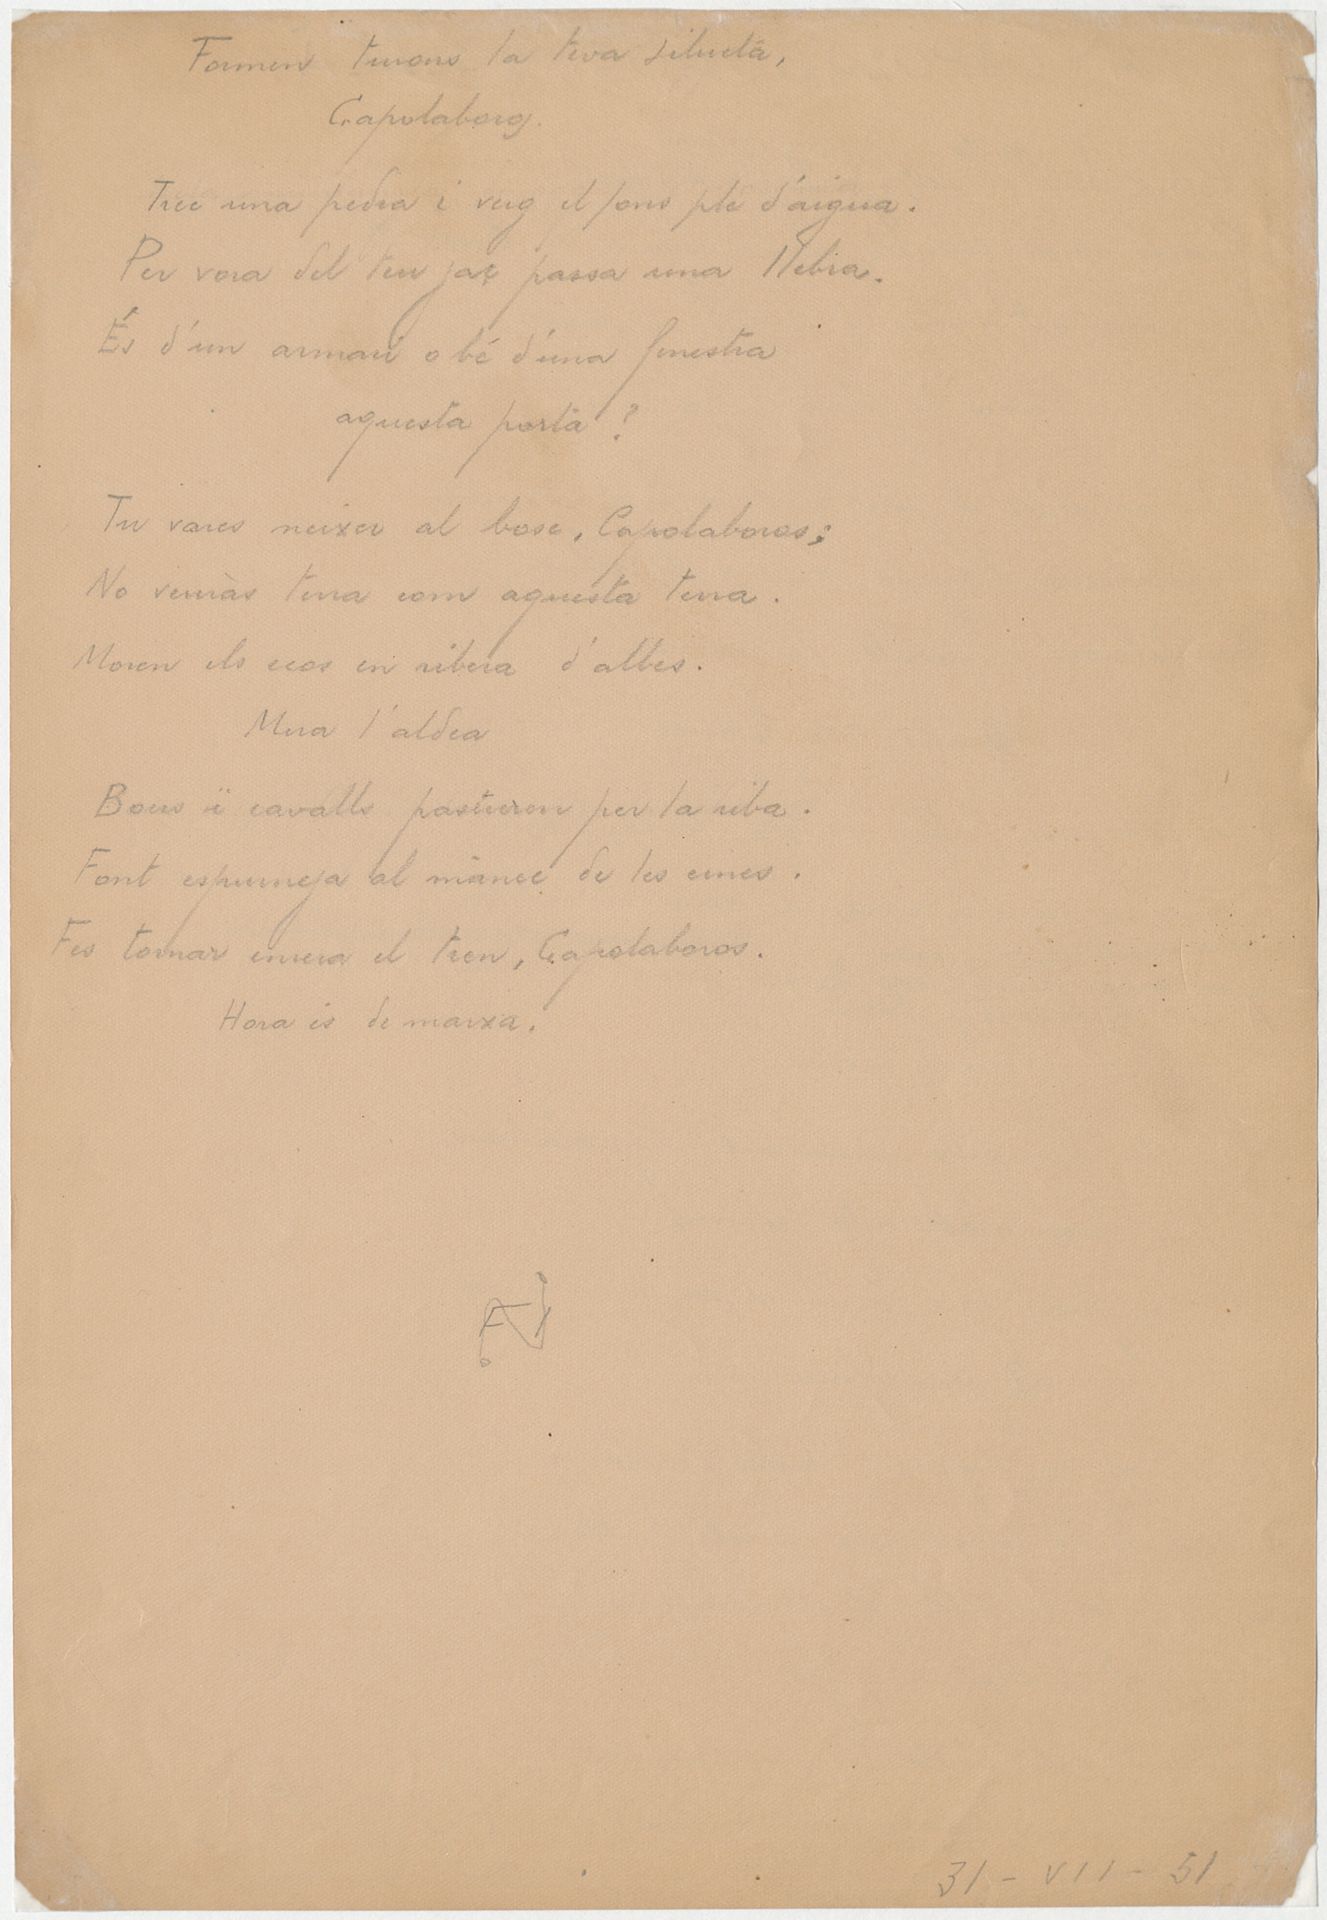 Formen turons la teva silueta,
Capolaborg.
Trec una pedra i veig el fons ple d'aigua.
Per vora del teu jaç passa una llebra.
És d'un armari o bé d'una finestra
aquesta porta?
Tu vares neixer al bosc, Capolaboros;
No veuràs terra com aquesta terra.
Moren els ecos en ribera d'albes.
Mira l'aldea
Bous i cavalls pasturen per la riba.
Font espurneja al mànec de les eines.
Fes tornar enrera el tren, Capolaboros.
Hora és de marxa.
31 - VII - 51